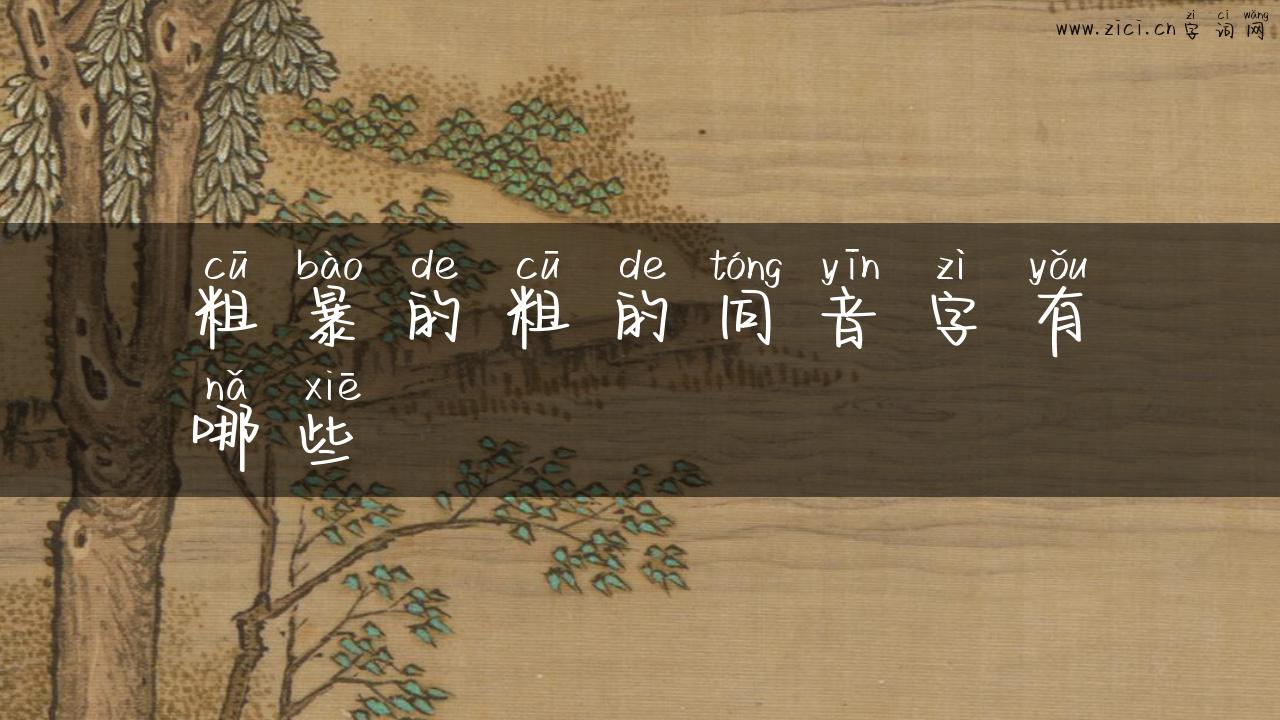 zì cí wǎng
www.zici.cn 字词网
cū bào de cū de tóng yīn zì yǒu
粗暴的粗的同音字有
nǎ xiē
哪些